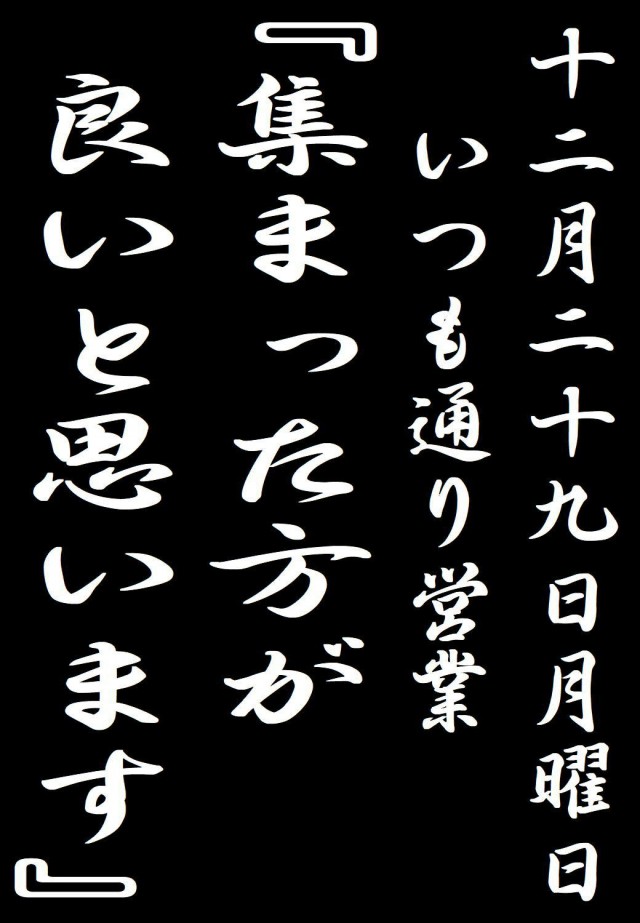 十二月二十九日月曜日
いつも通り営業
『集まった方が
良いと思います』